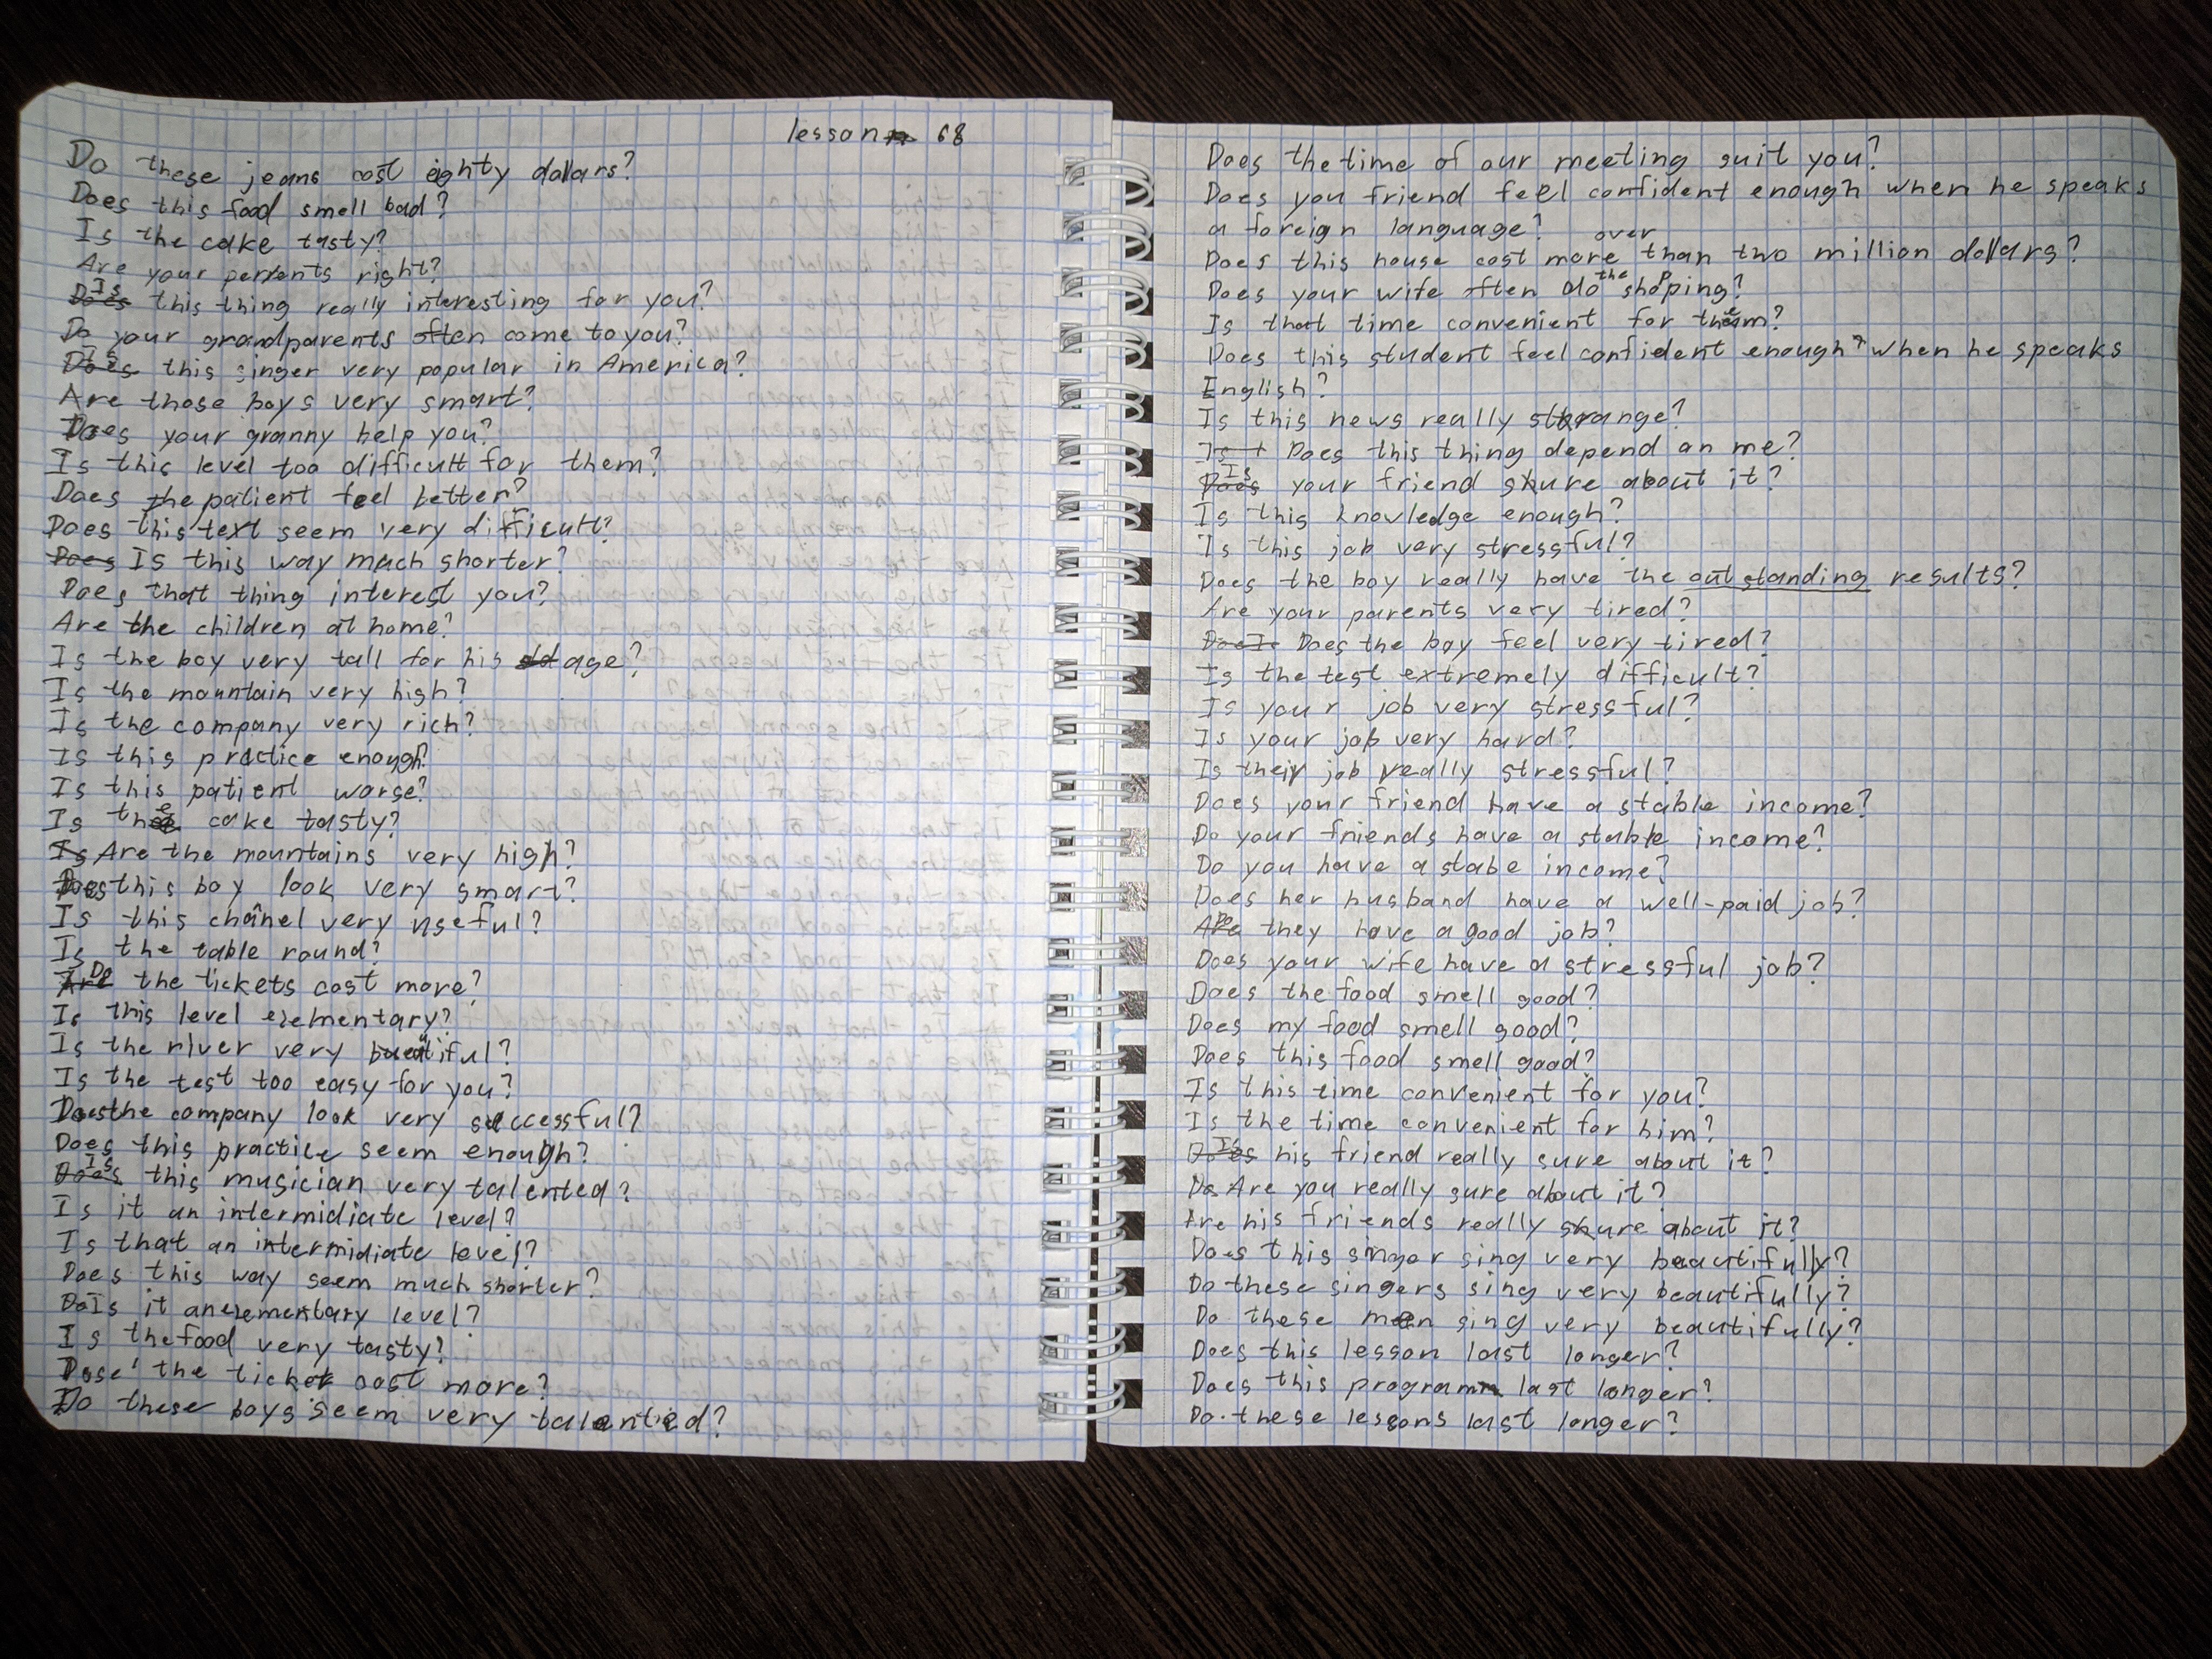 lesson 68
Do these jeans cost eighty dollars?
Does this food smell bad?
Is the cake tasty?
Are your perents right?
Is this thing really interesting for you?
Do your grandparents often come to you?
Is this singer very popular in America?
Are those boys very smart?
Does your granny help you?
Is this level too difficult for them?
Does the patient feel better?
Does this text seem very difficult?
Is this way much shorter?
Does that thing interest you?
Are the children at home?
Is the boy very tall for his age?
Is the mountain very high?
Is the company very rich?
Is this practice enough?
Is this patient worse?
Is the cake tasty?
Are the mountains very high?
Does this boy look very smart?
Is this chanel very useful?
Is the table round?
Do the tickets cost more?
Is this level elementary?
Is the river very beautiful?
Is the test too easy for you?
Does the company look very successful?
Does this practice seem enough?
Is this musician very talented?
Is it an intermidiate level?
Is that an intermidiate level?
Does this way seem much shorter?
Is it an elementary level?
Is the food very tasty?
Dose the ticket cost more?
Do these boys seem very talented?
Does the time of our meeting suit you?
Does you friend feel confident enough when he speaks
a foreign language?
over
Does this house cost more than two million dollars?
Does your wife often do the shopping?
Is that time convenient for them?
Does this student feel confident enough when he speaks
English?
Is this news really strange?
Does this thing depend on me?
Is your friend shure about it?
Is this knowledge enough?
Is this job very stressful?
Does the boy really have the outstanding results?
Are your parents very tired?
Does the boy feel very tired?
Is the test extremely difficult?
Is your job very stressful?
Is your job very hard?
Is their job really stressful?
Does your friend have a stable income?
Do your friends have a stable income?
Do you have a stabe income?
Does her husband have a well-paid job?
Do they have a good job?
Does your wife have a stressful job?
Does the food smell good?
Does my food smell good?
Does this food smell good?
Is this time convenient for you?
Is the time convenient for him?
Is his friend really sure about it?
Are you really sure about it?
Are his friends really shure about it?
Does this singer sing very beautifully?
Do these singers sing very beautifully?
Do these men sing very beautifully?
Does this lesson last longer?
Does this program last longer?
Do these lessons last longer?